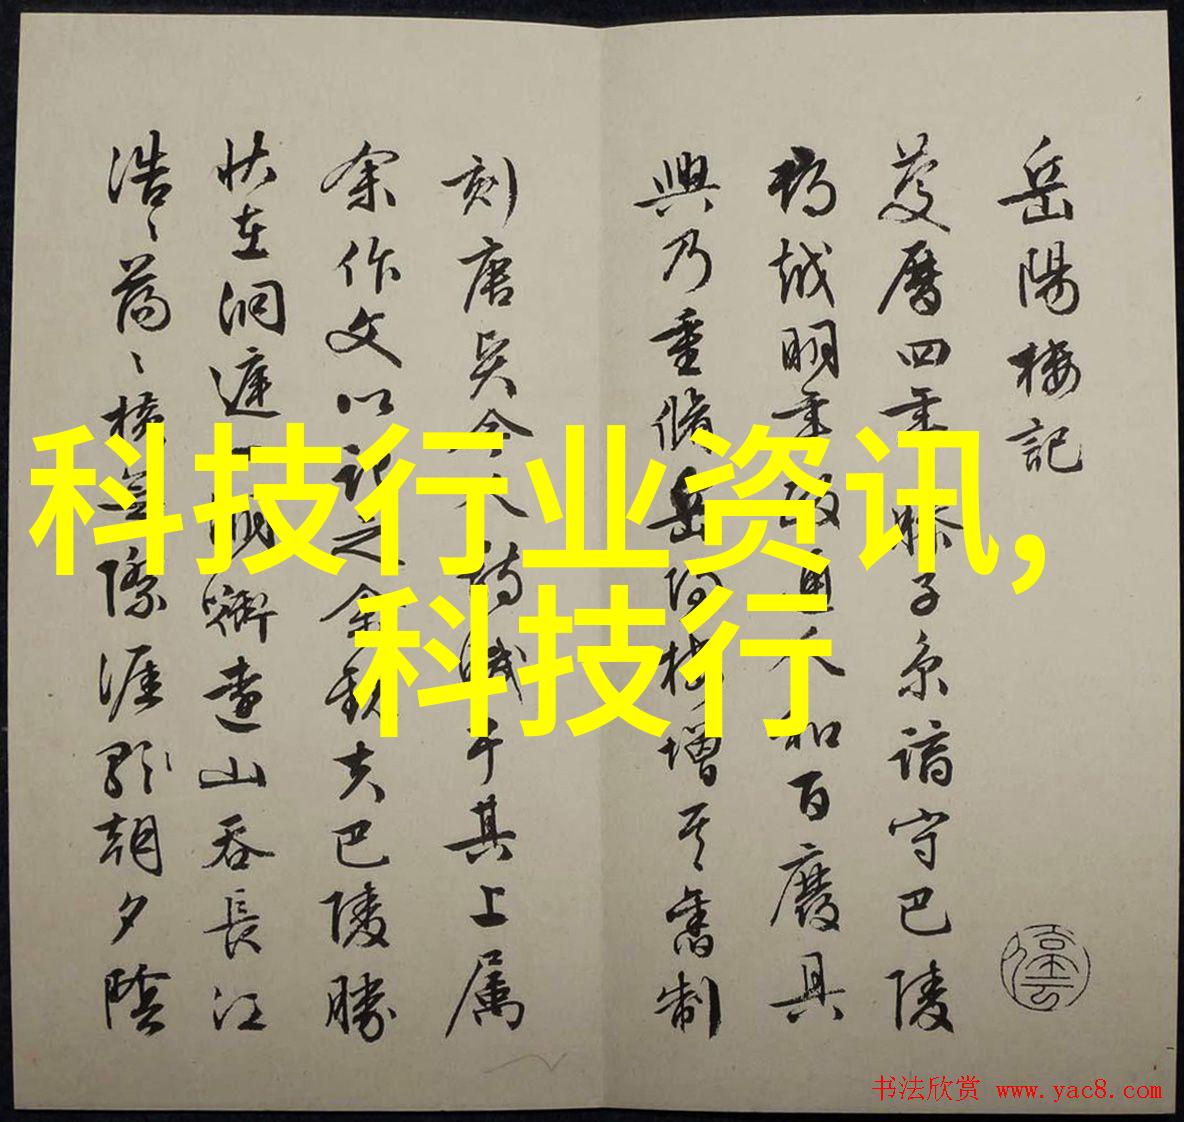 岳陽樓記
慶曆四年滕子京謫守巴陵
郡越明年政通人和百廢具
興乃重修岳陽樓增其舊制
刻唐賢今人詩賦于其上属
余作文以記之余觀夫巴陵勝
狀在洞庭一湖銜遠山吞長江
浩〻蕩〻橫無際涯朝夕陰
科技行业资讯,
科技行
书法欣赏 www.yac8.com